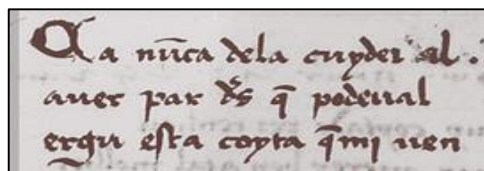 Ca nũca dela cuydei al.
auer par d̃s q̃ podeual
ergu esta coyta q̃mi uen